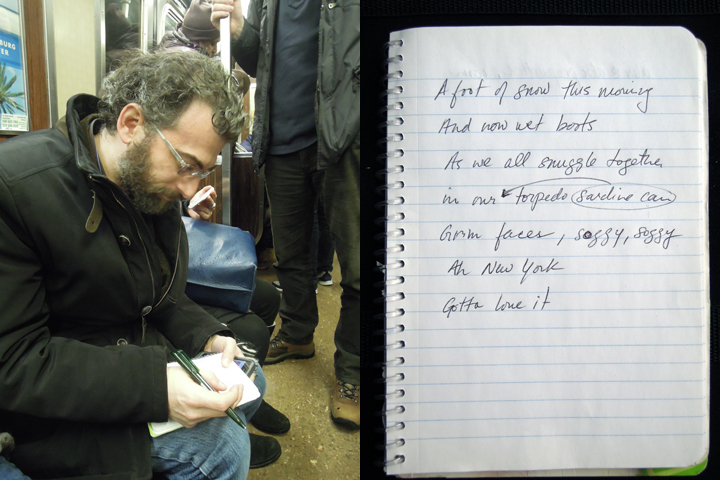 BURG
TER
A foot of snow this morning
And now wet boots
As we all snuggle together
in our torpedo sardine can
Grim faces, soggy, soggy
Ah New York
Gotta love it